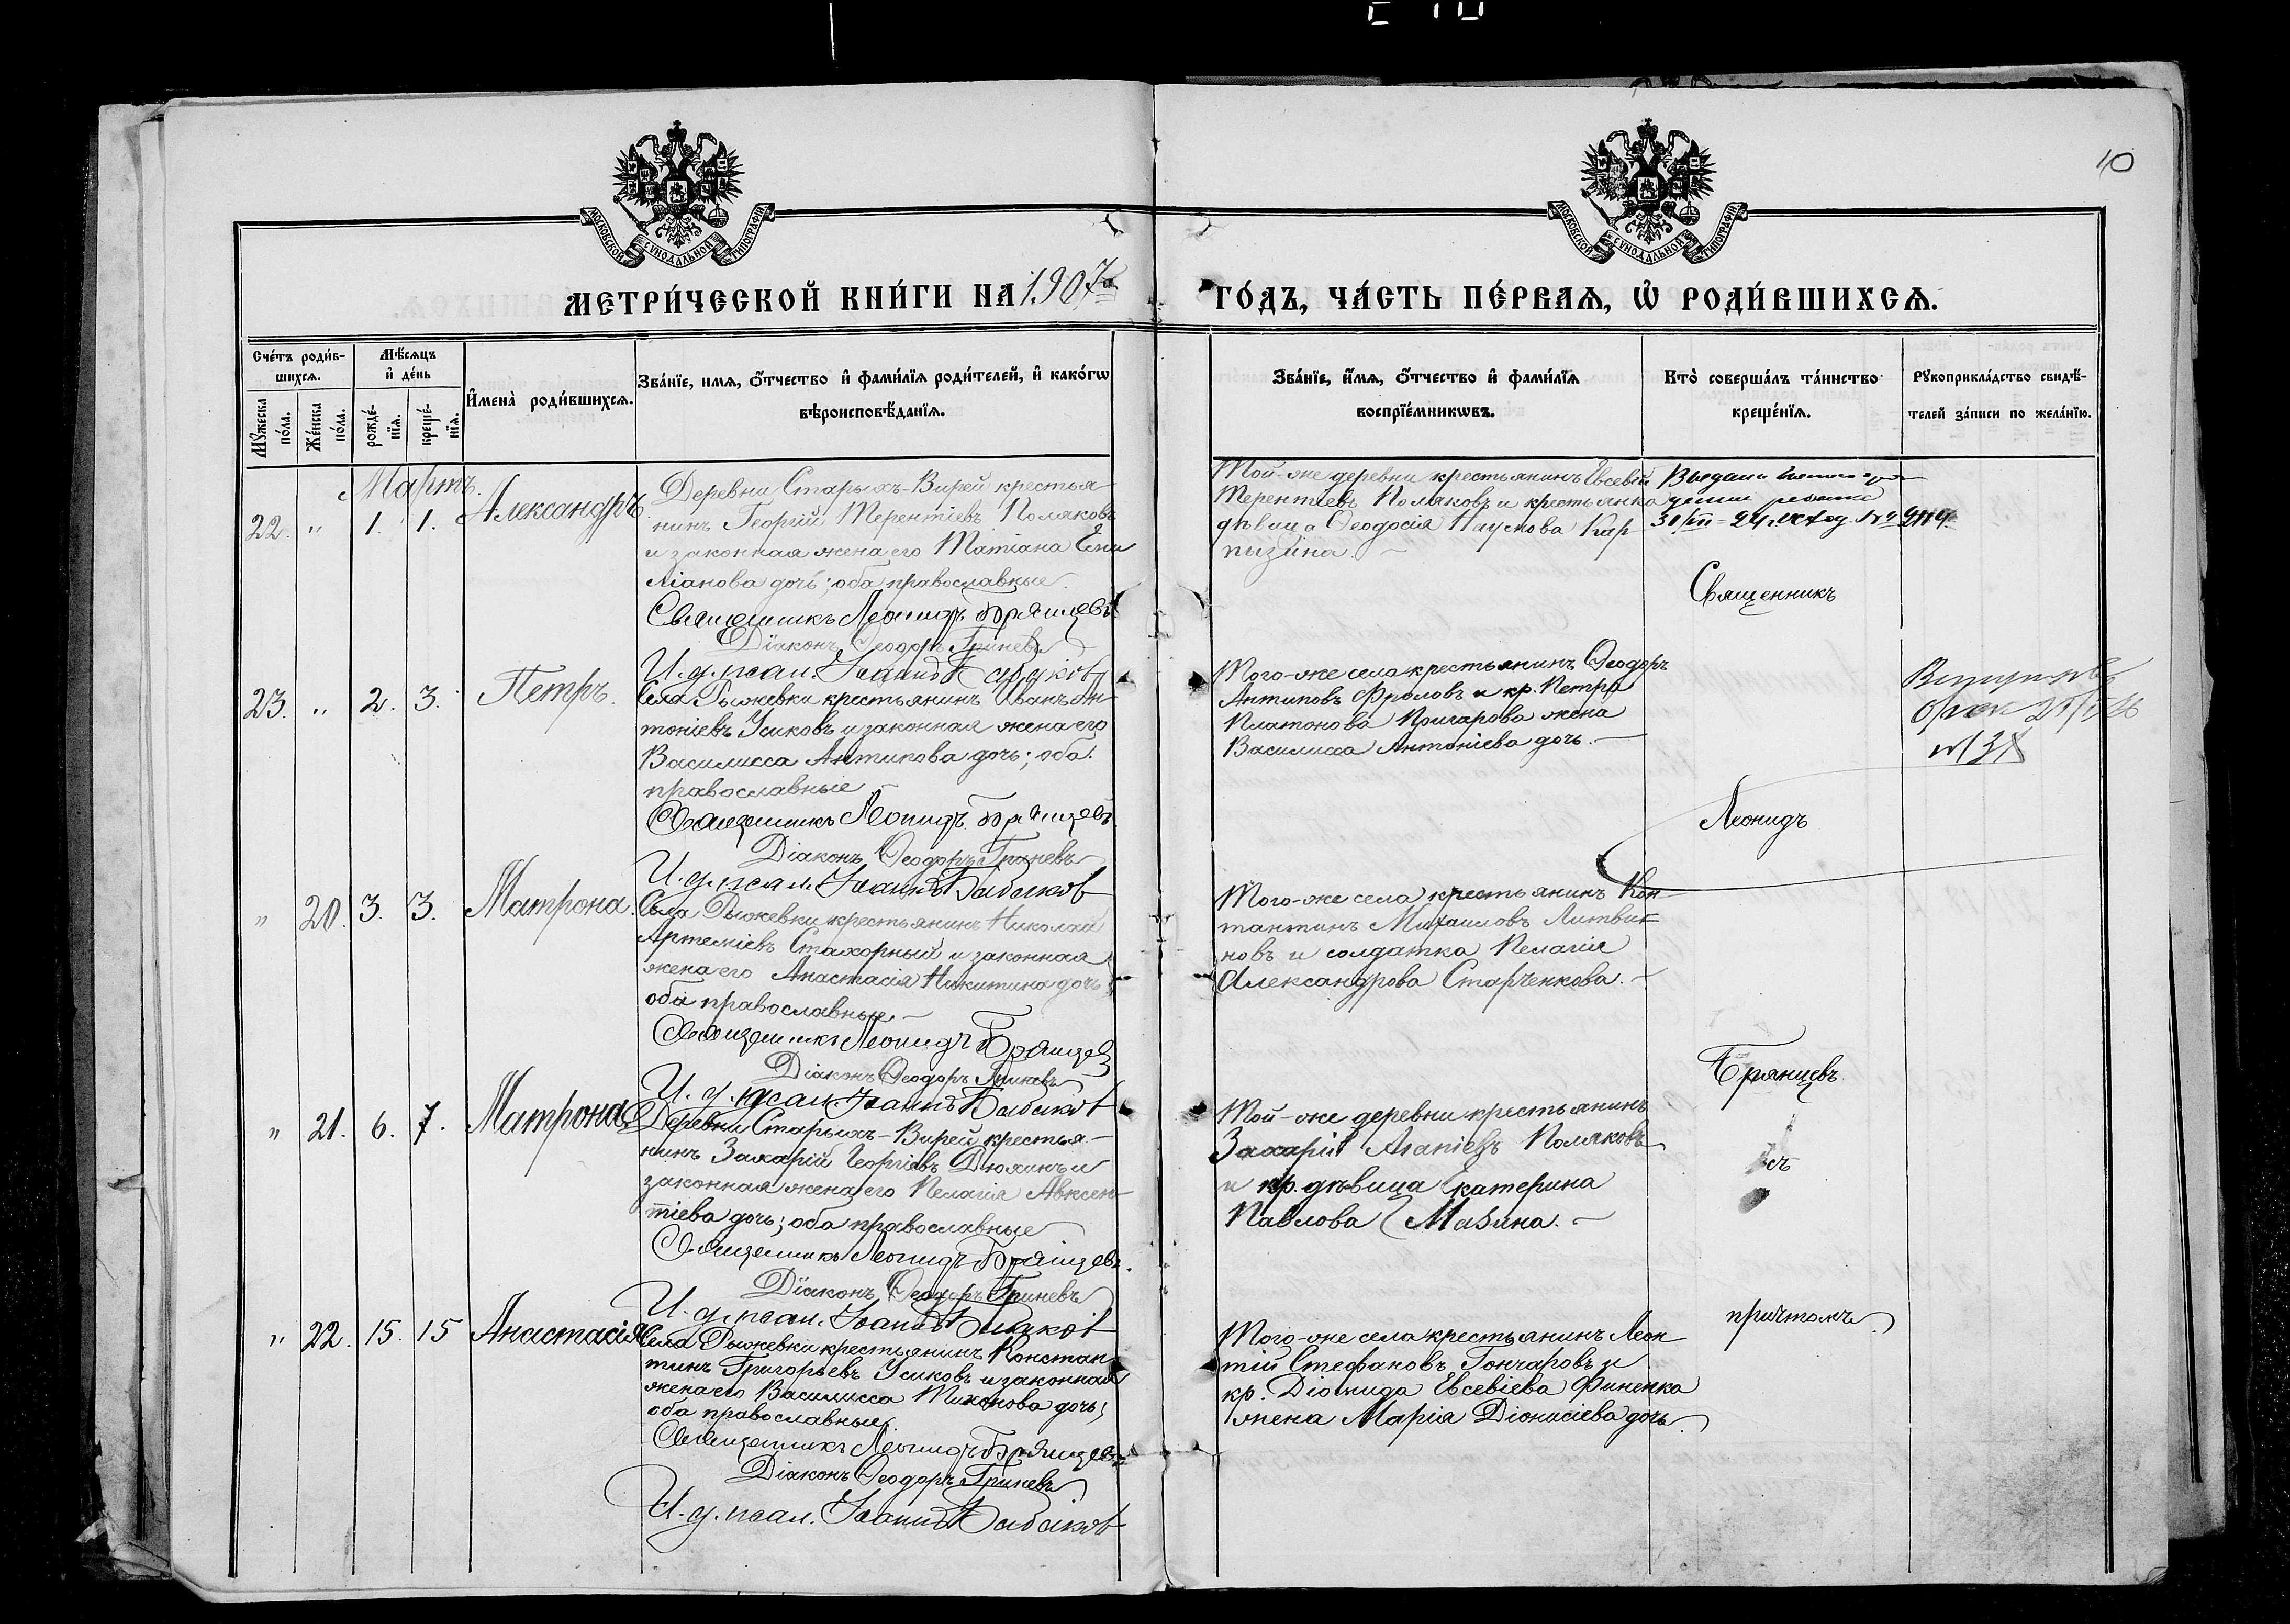 10
МОСКОВСКОЙ СѴНОДАЛЬНОЙ ТИПОГРАФІИ
МОСКОВСКОЙ СѴНОДАЛЬНОЙ ТИПОГРАФІИ
МЕТРИ́ЧЕСКОЙ КНИ́ГИ НА 1907 го́дъ, ча́сть пе́рваѧ, ѡ҆ роди́вшихсѧ.
Сче́тъ роди́в-
шихсѧ.
Мꙋжеска по́ла.
Же́нска по́ла.
Мѣ́сѧцъ
и҆ де́нь
рожде́-
нїѧ.
креще́-
нїѧ.
И҆мена̀ роди́вшихсѧ.
Зва́нїе, имѧ, ѻ҆́тчество и҆ фами́лїѧ роди́телей, и҆ како́гѡ
вѣроисповѣ́данїѧ.
Зва́нїе, и҆́мѧ, ѻ҆́тчество и҆ фами́лїѧ
воспрїе́мникѡвъ.
Кто̀ соверша́лъ та́инство
креще́нїѧ.
Рꙋкоприкла́дство свидѣ́-
телей за́писи по жела́нїю.
Мартъ.
22. " 1. 1. Александръ
Деревни Старыхъ-Вирей крестья-
нинъ Георгій Терентіевъ Поляковъ
и законная жена его Татіана Еми
ліанова дочь; оба православные.
Священникъ Леонидъ Брянцевъ
Діаконъ Ѳеодоръ Гриневъ
И. д. псал. Іоаннъ
Той-же деревни крестьянинъ Евсевій
Терентіевъ Поляковъ и крестьянка
дѣвица Ѳеодосія Наумова Кар
пызина.
Священникъ
23. " 2. 3. Петръ.
Села Рыжевки крестьянинъ Иванъ Ан-
тоніевъ Усиковъ и законная жена его
Василисса Антипова дочь; оба
православные
Священникъ Леонидъ Брянцевъ
Діаконъ Ѳеодоръ Гриневъ
И. д. псал. Іоаннъ
Того-же села крестьянинъ Ѳеодоръ
Антиповъ Фроловъ и кр. Петра
Платонова жена
Василисса Антоніева дочь.
Леонидъ
" 20. 3. 3. Матрона.
Села Рыжевки крестьянинъ Николай
Артеміевъ Стахорный и законная
жена его Анастасія Никитина дочь;
оба православные.
Священникъ Леонидъ Брянцевъ
Діаконъ Ѳеодоръ Гриневъ
И. д. псал. Іоаннъ
Того-же села крестьянинъ Кон-
тантинъ Михаиловъ Литвин
новъ и солдатка Пелагія
Александрова Старченкова.
Брянцевъ
" 21. 6. 7. Матрона
Деревни Старыхъ-Вирей крестья-
нинъ Захарій Георгіевъ Дюлинъ и
законная жена его Пелагія Авксен-
тіева дочь; оба православные
Священникъ Леонидъ Брянцевъ.
Діаконъ Ѳеодоръ Гриневъ
И. д. псал. Іоаннъ
Той-же деревни крестьянинъ
Захарій Агапіевъ Поляковъ
и кр. дѣвица Екатерина
Павлова Мазина.
съ
" 22. 15. 15 Анастасія
Села Рыжевки крестьянинъ Констан
тинъ Григорьевъ Усиковъ и законная
жена его Василисса Тихонова дочь;
оба православные.
Священникъ Леонидъ Брянцевъ
Діаконъ Ѳеодоръ Гриневъ
И. д. псал. Іоаннъ
Того-же села крестьянинъ Леон
тій Стефановъ Гончаровъ и
кр. Діомида Евсевіева Финенко
жена Марія Діонисіева дочь.
причтомъ